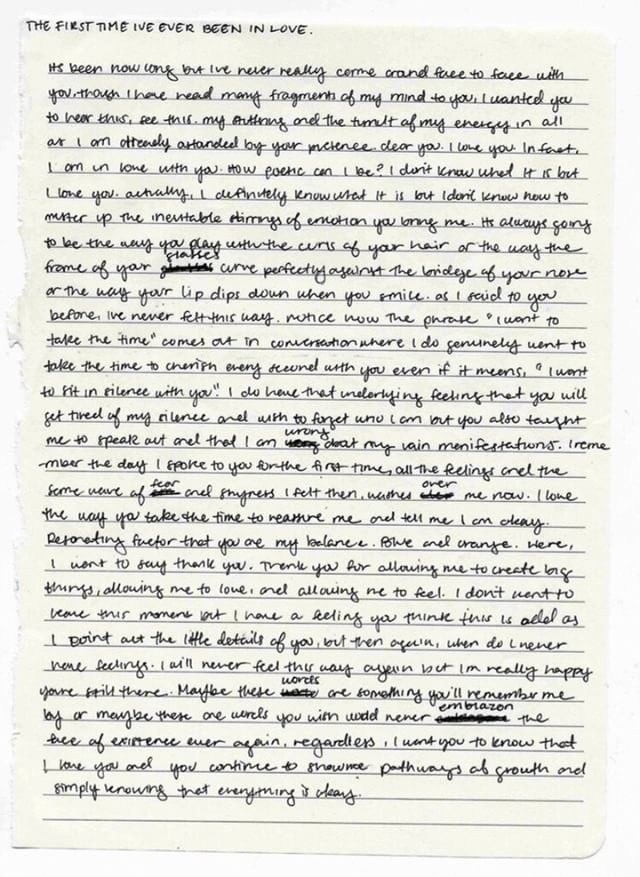 THE FIRST TIME IVE EVER BEEN IN LOVE.
Its been how long but ive never really come around face to face with
you, though I have read many fragments of my mind to you, I wanted you
to hear this, see this. my stuttering and the tumult of my energy in all
as I am already astounded by your presence. dear you. I love you. In fact,
I am in love with you. How poetic can I be? I don't know what it is but
I love you. actually, I definitely know what it is but I don't know how to
muster up the inevitable stirrings of emotion you bring me. Its always going
to be the way you play with the curls of your hair or the way the
frame of your glasses curve perfectly against the bridge of your nose
or the way your lip dips down when you smile. as I said to you
before, ive never felt this way. notice how the phrase "I want to
take the time" comes out in conversation where I do genuinely want to
take the time to cherish every second with you even if it means, "I want
to sit in silence with you." I do have that underlying feeling that you will
get tired of my silence and wish to forget who I am but you also taught
me to speak out and that I am wrong about my vain manifestations. I reme
-mber the day I spoke to you for the first time, all the feelings and the
same wave of fear and shyness I felt then, washes over me now. I love
the way you take the time to reassure me and tell me I am okay.
Resonating factor that you are my balance. Blue and orange. Here,
I want to say thank you. Thank you for allowing me to create big
things, allowing me to love, and allowing me to feel. I don't want to
leave this moment but I have a feeling you think this is odd as
I point out the little details of you, but then again, when do I never
have feelings. I will never feel this way again but Im really happy
youre still there. Maybe these words are something you'll remember me
by or maybe these are words you wish would never emblazon the
face of existence ever again, regardless, I want you to know that
I love you and you continue to show me pathways of growth and
simply knowing that everything is okay.